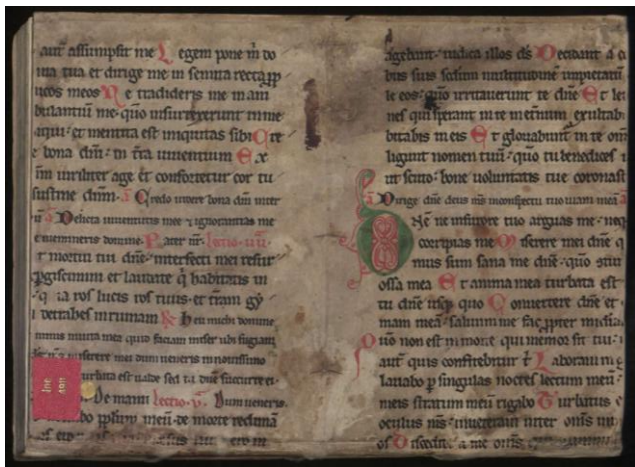 aut assumpsit me Legem pone m̄ do
uia tua et dirige me in semita recta ꝓp
micos meos Ne tradideris me in am
bulantiū me quō insurrexerunt in me
iniqui et mentita est iniquitas sibi Cre
e bona dm̄ in tr̄a uiuentium Ex
m̄ uiriliter age et confortetur cor tu
sustine dm̄m a Credo uidere bona dm̄i inter
a Delicta iuuentutis mee ignorantias me
e memineris domine Pater nr̄ Lectio
t mortui tui dn̄e interfecti mei resur
ꝑgiscimini et laudate q̄ habitatis in
q ia ros lucis ros tuus et tram gy
detrahes in ruinam R heu michi domine
nimis in uita mea quid faciam miser ubi fugiam
miserere mei dum ueneris in nouissimo
turbata est ualde sed tu dn̄e succurre ei
De manu Lectio v Dum ueneris
meū de morte redimā
agebant iudica illos ds̄ Decidant a co
bus suis scdm multitudinē impietatū
le eos quō irritauerunt te dn̄e Et le
nes qui sperant in te in eternū exultab
bitabis in eis Et gloriabunt in te om̄
ligunt nomen tuū quō tu benedices i
ut scuto bone uoluntatis tue coronast
Dirige dn̄e deus ms̄ in conspectu tuo uiam meā
Ne ne in furore tuo arguas me neq
corripias me Miserere mei dn̄e q
mus sum sana me dn̄e quō stur
ossa mea Et anima mea turbata est
tu dn̄e usq quo Conuertere dn̄e et
mam meā saluum me fac ꝓpter mi
Quō non est in morte qui memor sit tui
aut quis confitebitur t Laboraui in g
lauabo ꝑ singulas noctes lectum meū
meis stratum meū rigabo Turbatus e
oculus ms̄ inueteraui inter om̄s in
os Discedite a me om̄s